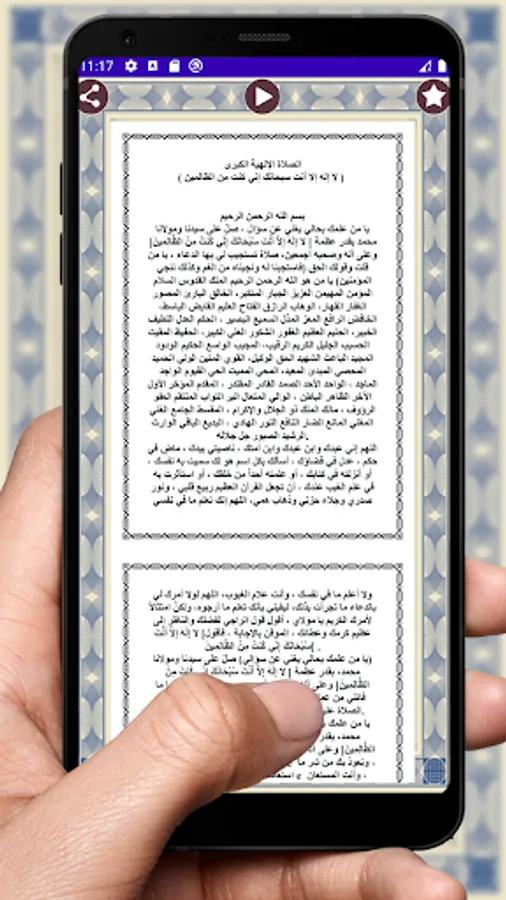 11:17
الصلاة الإلهية الكبرى
( لا إله إلا أنت سبحانك إني كنت من الظالمين )
بسم الله الرحمن الرحيم
يا من علمك بحالي يغني عن سؤالي ، صلّ على سيدنا ومولانا
محمد بقدر عظمة [ لا إلهَ إلاَّ أنْتَ سُبْحَانَكَ إِنِّي كُنْتُ مِنَ الظَّالِمِينَ]
وعلى آله وصحبه أجمعين، صلاة تستجيب لي بها الدعاء ، يا من
قلت وقولك الحق (فاستجبنا له ونجيناه من الغم وكذلك ننجي
المؤمنين) يا من هو الله الرحمن الرحيم الملك القدوس السلام
المؤمن المهيمن العزيز الجبار المتكبر، الخالق البارئ المصور
الغفار القهار، الوهاب الرازق الفتاح العليم القابض الباسط،
الخافض الرافع المعز المذل السميع البصير ، الحكم العدل اللطيف
الخبير، الحليم العظيم الغفور الشكور العلي الكبير، الحفيظ المقيت
الحسيب الجليل الكريم الرقيب، المجيب الواسع الحكيم الودود
المجيد الباعث الشهيد الحق الوكيل، القوي المتين الولي الحميد
المحصي المبدئ المعيد، المحي المميت الحي القيوم الواجد
الماجد ، الواحد الأحد الصمد القادر المقتدر ، المقدم المؤخر الأول
الآخر الظاهر الباطن ، الوالي المتعال البر التواب المنتقم العفو
الرؤوف ، مالك الملك ذو الجلال والإكرام ، المقسط الجامع الغني
المغني المانع الضار النافع النور الهادي ، البديع الباقي الوارث
الرشيد الصبور جل جلاله.
اللهم إني عبدك وابن عبدك وابن أمتك ، ناصيتي بيدك ، ماض في
حكم ، عدل في قضاؤك ، أسألك بكل اسم هو لك سميت به نفسك ،
أو أنزلته في كتابك ، أو علمته أحداً من خلقك ، أو استأثرت به
في علم الغيب عندك ، أن تجعل القرآن العظيم ربيع قلبي ، ونور
صدري وجلاء حزني وذهاب همي، اللهم إنك تعلم ما في نفسي
ولا أعلم ما في نفسك ، وأنت علام الغيوب، اللهم لولا أمرك لي
بالدعاء ما تجرأت بذلك، ليقيني بأنك تعلم ما أرجوه، ولكنْ امتثالاً
لأمرك الكريم يا مولاي ، أقول قول الراجي لفضلك والناظر إلى
عظيم كرمك وعطائك ، الموقن بالإجابة ، فأقول[ لا إله إلاَّ أنْتَ
سُبْحَانَكَ إِنِّي كُنْتُ مِنَ الظَّالِمِينَ] .
(يا من علمك بحالي يغني عن سؤالي) صلّ على سيدنا ومولانا
محمد، بقدر عظمة [ لا إلهَ إلاَّ أنْتَ سُبْحَانَكَ
الظَّالِمِينَ] وعلى
الصلاة
يا من علمك
محمد، بقدر
الظَّالِمِينَ] وعلى
، ونعوذ بك من شر ما
، وأنت المستعان